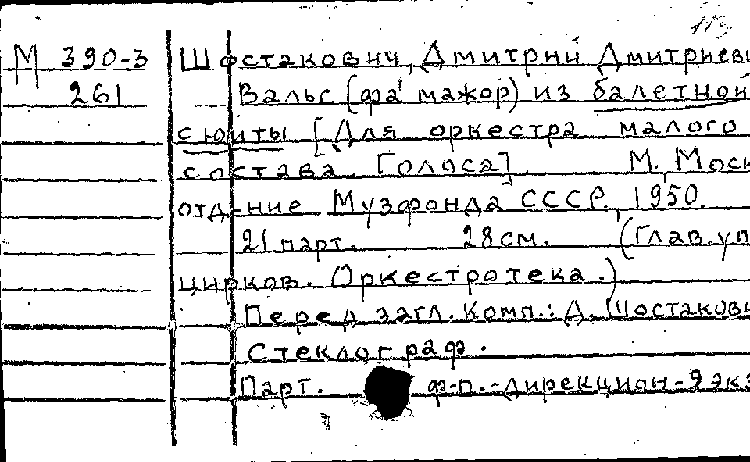 М 390-3 Шостакович, Дмитрий Дмитриеви
261 Вальс [фа мажор) из балетной
сюиты [Для оркестра малого
состава. Голоса] М., Моск
отд-ние Музфонда СССР, 1950.
21 парт. 28 см. (Глав. уп
цирков. Оркестротека.)
Перед загл. комп.: Д. Шостакови
Стеклограф.
Парт. ф-п.-дирекцион-2 экз